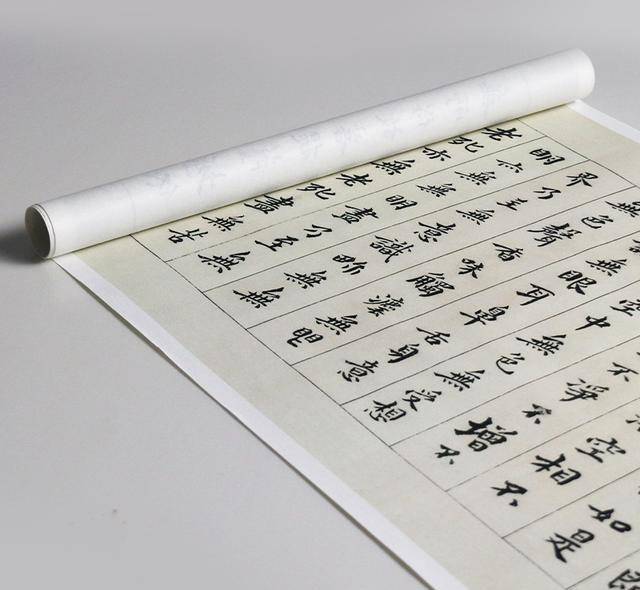 即
如是
空相不
不淨不增不
空中無色無受想
無眼耳鼻舌身意
無色聲香味觸法無眼
界乃至無意識界無無
明亦無無明盡乃至無
老死亦無老死盡無苦